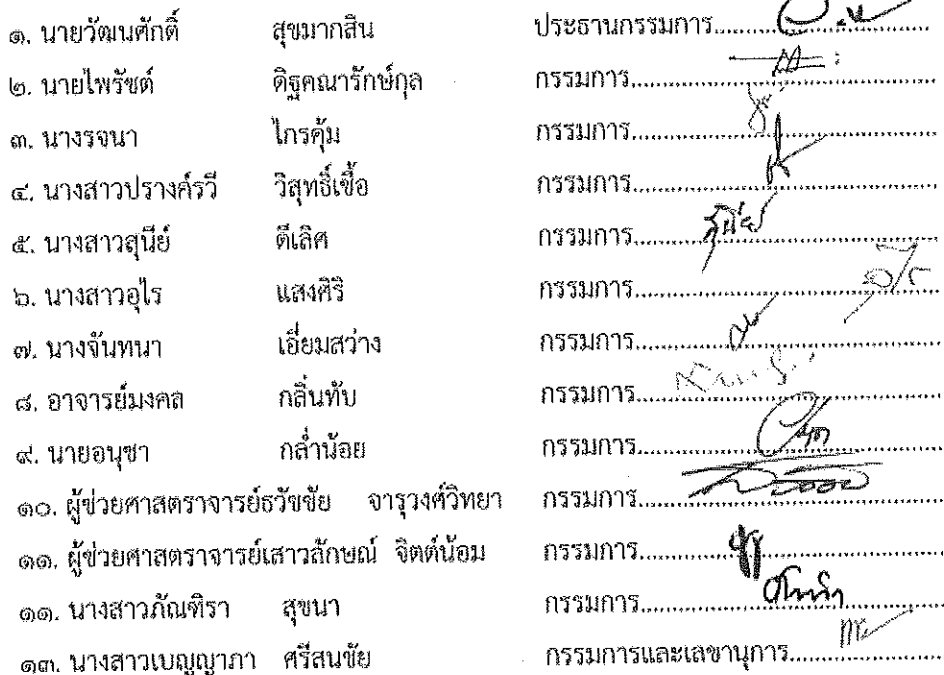 ๑. นายวัฒนศักดิ์ สุขมากสิน ประธานกรรมการ
๒. นายไพรัชต์ ดิฐคณารักษ์กุล กรรมการ
๓. นางรจนา ไกรคุ้ม กรรมการ
๔. นางสาวปรางค์รวี วิสุทธิ์เชื้อ กรรมการ
๕. นางสาวสุนีย์ ดีเลิศ กรรมการ สุนีย์
๖. นางสาวอุไร แสงศิริ กรรมการ
๗. นางจันทนา เอี่ยมสว่าง กรรมการ
๘. อาจารย์มงคล กลิ่นทับ กรรมการ
๙. นายอนุชา กล่ำน้อย กรรมการ
๑๐. ผู้ช่วยศาสตราจารย์ธวัชชัย จารุวงศ์วิทยา กรรมการ
๑๑. ผู้ช่วยศาสตราจารย์เสาวลักษณ์ จิตต์น้อม กรรมการ
๑๑. นางสาวภัณฑิรา สุขนา กรรมการ
๑๓. นางสาวเบญญาภา ศรีสนชัย กรรมการและเลขานุการ